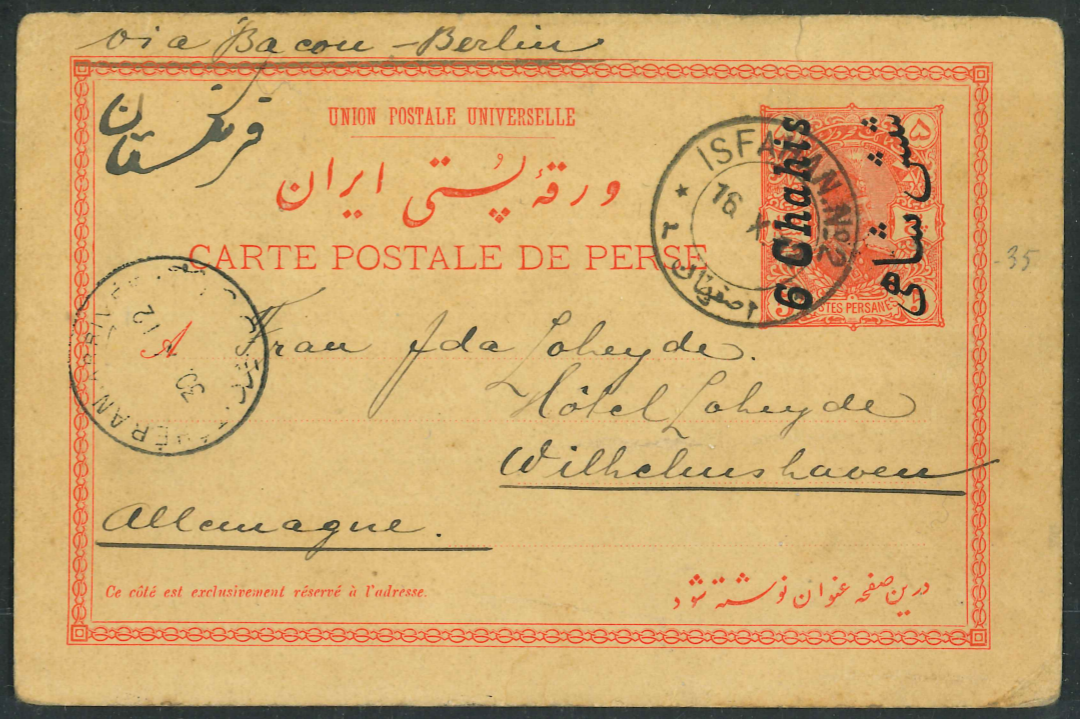 via Bacou - Berlin
فرنگستان
UNION POSTALE UNIVERSELLE
ورقهٔ پُستی ایران
CARTE POSTALE DE PERSE
6 Chahis
شش شاهی
۵
POSTES PERSANES
ISFAHAN. No. 2
16 X
اصفهان
TÉHÉRAN ARRIVÉE
30
12
A
-35
Frau Ida Loheyde.
Hôtel Loheyde
Wilhelmshaven
Allemagne.
Ce côté est exclusivement réservé à l'adresse.
درین صفحه عنوان نوشته شود